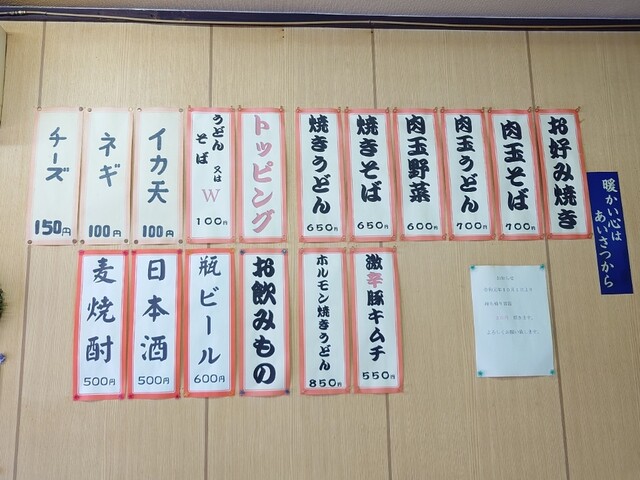 お好み焼き
肉玉そば
700円
肉玉うどん
700円
肉玉野菜
600円
焼きそば
650円
焼きうどん
650円
トッピング
うどん
又は
そば
W
100円
イカ天
100円
ネギ
100円
チーズ
150円
激辛豚キムチ
550円
ホルモン焼きうどん
850円
お飲みもの
瓶ビール
600円
日本酒
500円
麦焼酎
500円
暖かい心は
あいさつから